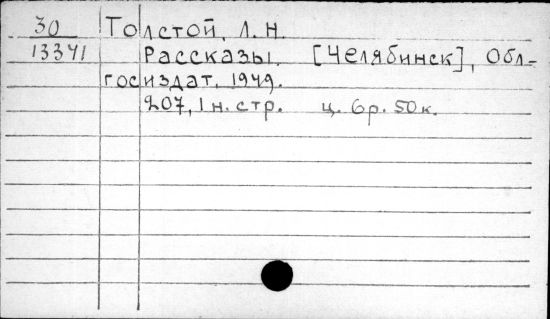 30 Толстой, Л. Н.
13341 Рассказы. [Челябинск], Обл-
госиздат, 1949.
207, 1 н. стр. ц. 6р. 50к.